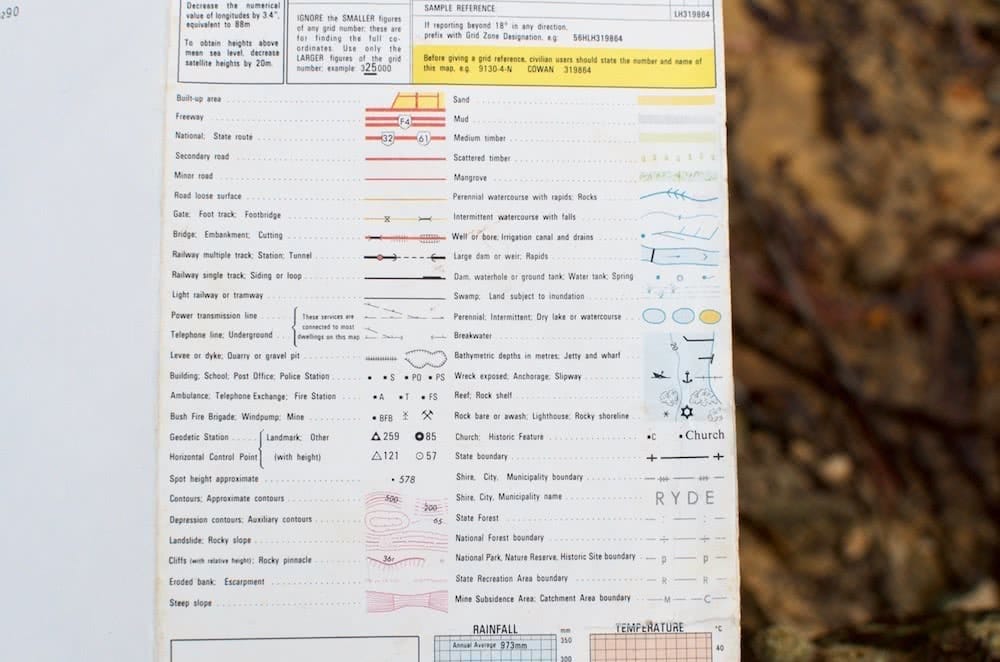 290
Decrease the numerical
value of longitudes by 3.4",
equivalent to 88m
To obtain heights above
mean sea level, decrease
satellite heights by 20m.
IGNORE the SMALLER figures
of any grid number; these are
for finding the full co-
ordinates. Use only the
LARGER figures of the grid
number; example: 325000
SAMPLE REFERENCE
LH319864
If reporting beyond 18° in any direction,
prefix with Grid Zone Designation, e.g: 56HLH319864
Before giving a grid reference, civilian users should state the number and name of
this map, e.g. 9130-4-N COWAN 319864
Built-up area
Freeway F4
National; State route 32 61
Secondary road
Minor road
Road loose surface
Gate; Foot track; Footbridge
Bridge; Embankment; Cutting
Railway multiple track; Station; Tunnel
Railway single track; Siding or loop
Light railway or tramway
Power transmission line
Telephone line; Underground
These services are
connected to most
dwellings on this map
Levee or dyke; Quarry or gravel pit
Building; School; Post Office; Police Station S PO PS
Ambulance; Telephone Exchange; Fire Station A T FS
Bush Fire Brigade; Windpump; Mine BFB
Geodetic Station Landmark; Other 259 85
Horizontal Control Point (with height) 121 57
Spot height approximate 578
Contours; Approximate contours 500 200
Depression contours; Auxiliary contours 65
Landslide; Rocky slope
Cliffs (with relative height); Rocky pinnacle
Eroded bank; Escarpment
Steep slope
Sand
Mud
Medium timber
Scattered timber
Mangrove
Perennial watercourse with rapids; Rocks
Intermittent watercourse with falls
Well or bore; Irrigation canal and drains
Large dam or weir; Rapids
Dam, waterhole or ground tank; Water tank; Spring
Swamp; Land subject to inundation
Perennial; Intermittent; Dry lake or watercourse
Breakwater
Bathymetric depths in metres; Jetty and wharf 20
Wreck exposed; Anchorage; Slipway
Reef; Rock shelf
Rock bare or awash; Lighthouse; Rocky shoreline
Church; Historic Feature C Church
State boundary
Shire, City, Municipality boundary
Shire, City, Municipality name RYDE
State Forest
National Forest boundary
National Park, Nature Reserve, Historic Site boundary p p
State Recreation Area boundary R R
Mine Subsidence Area; Catchment Area boundary M C
RAINFALL
mm
Annual Average 973mm
350
300
TEMPERATURE
°C
40